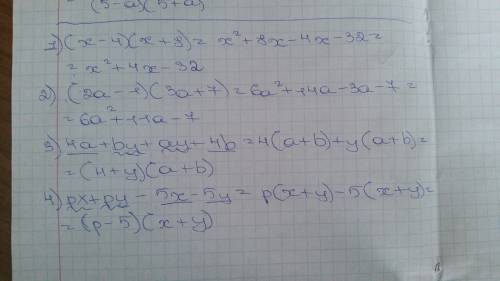 (5-a)(5+a)
1) (x-4)(x+8) = x²+8x-4x-32 =
= x²+4x-32
2) (2a-1)(3a+7) = 6a²+14a-3a-7 =
= 6a²+11a-7
3) 4a+by+ay+4b = 4(a+b)+y(a+b) =
= (4+y)(a+b)
4) px+py-5x-5y = p(x+y)-5(x+y) =
= (p-5)(x+y)